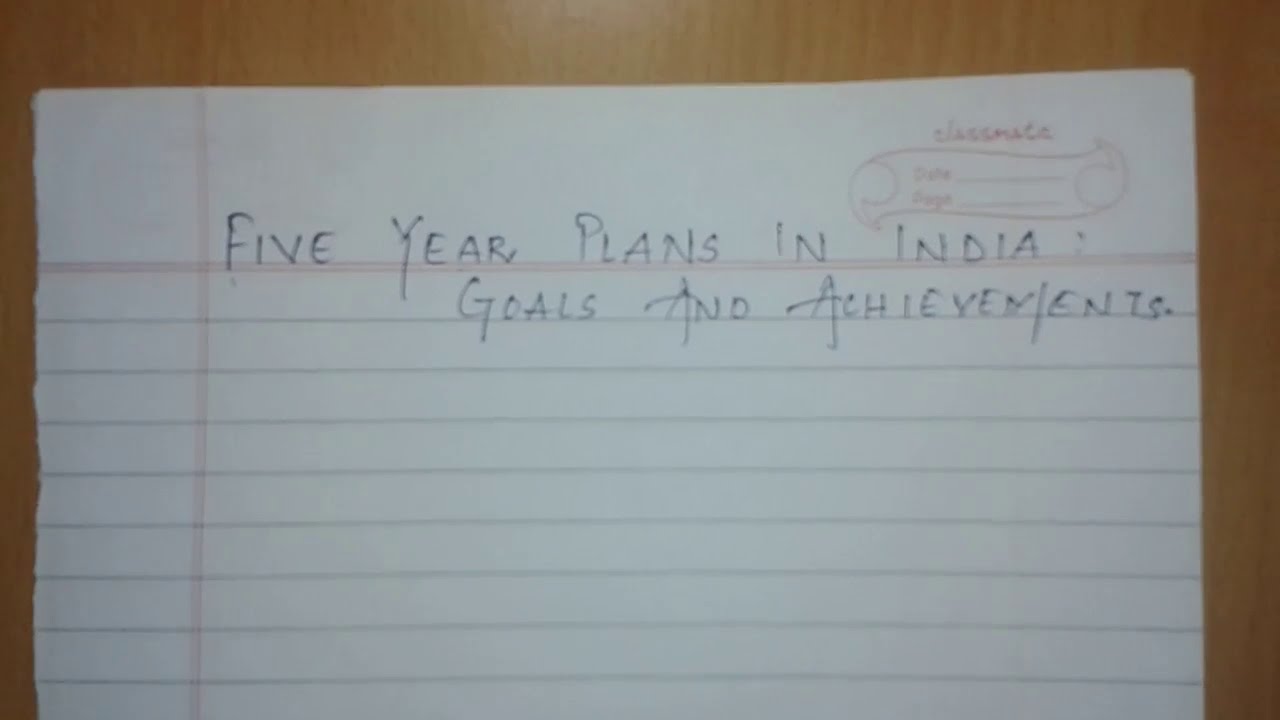 classmate
Date
Page
FIVE YEAR PLANS IN INDIA :
GOALS AND ACHIEVEMENTS.